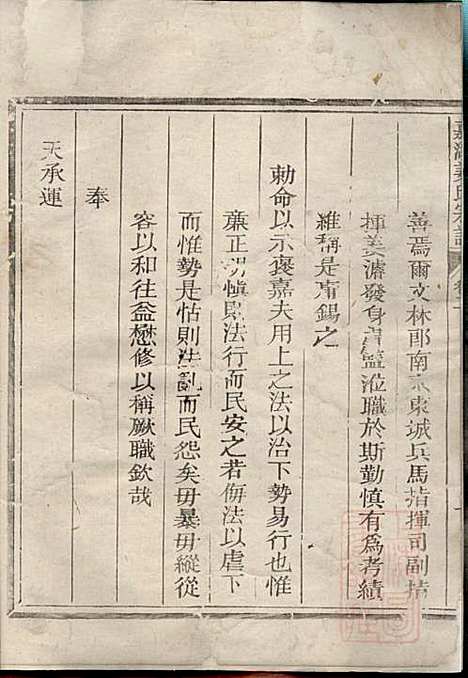 善焉爾文林郎南京東城兵馬指揮司副指
揮姜濬發身冑監涖職於斯勤慎有為考績
維稱是用錫之
勅命以示褒嘉夫用上之法以治下勢易行也惟
廉正明慎則法行而民安之若侮法以虐下
而惟勢是怙則法亂而民怨矣毋暴毋縱從
容以和往益懋修以稱厥職欽哉
奉
天承運